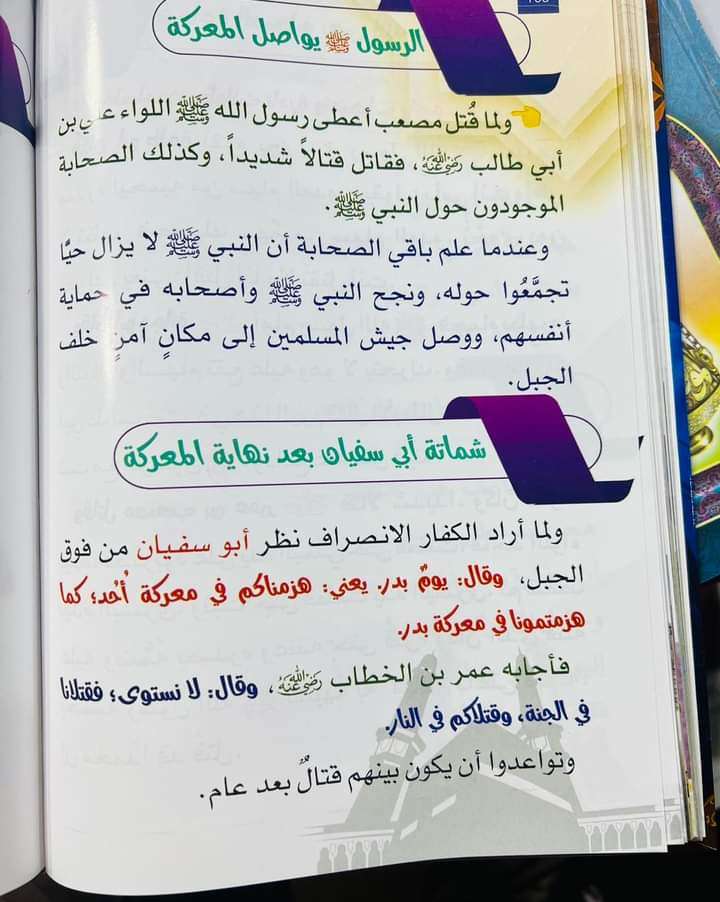 الرسول ﷺ يواصل المعركة
ولما قُتل مصعب أعطى رسول الله ﷺ اللواء علي بن
أبي طالب رضي الله عنه، فقاتل قتالاً شديداً، وكذلك الصحابة
الموجودون حول النبي ﷺ.
وعندما علم باقي الصحابة أن النبي ﷺ لا يزال حيًّا
تجمَّعُوا حوله، ونجح النبي ﷺ وأصحابه في حماية
أنفسهم، ووصل جيش المسلمين إلى مكانٍ آمنٍ خلف
الجبل.
شماتة أبي سفيان بعد نهاية المعركة
ولما أراد الكفار الانصراف نظر أبو سفيان من فوق
الجبل، وقال: يومٌ بدر. يعني: هزمناكم في معركة أُحد؛ كما
هزمتمونا في معركة بدر.
فأجابه عمر بن الخطاب رضي الله عنه، وقال: لا نستوى؛ فقتلانا
في الجنة، وقتلاكم في النار.
وتواعدوا أن يكون بينهم قتالٌ بعد عام.